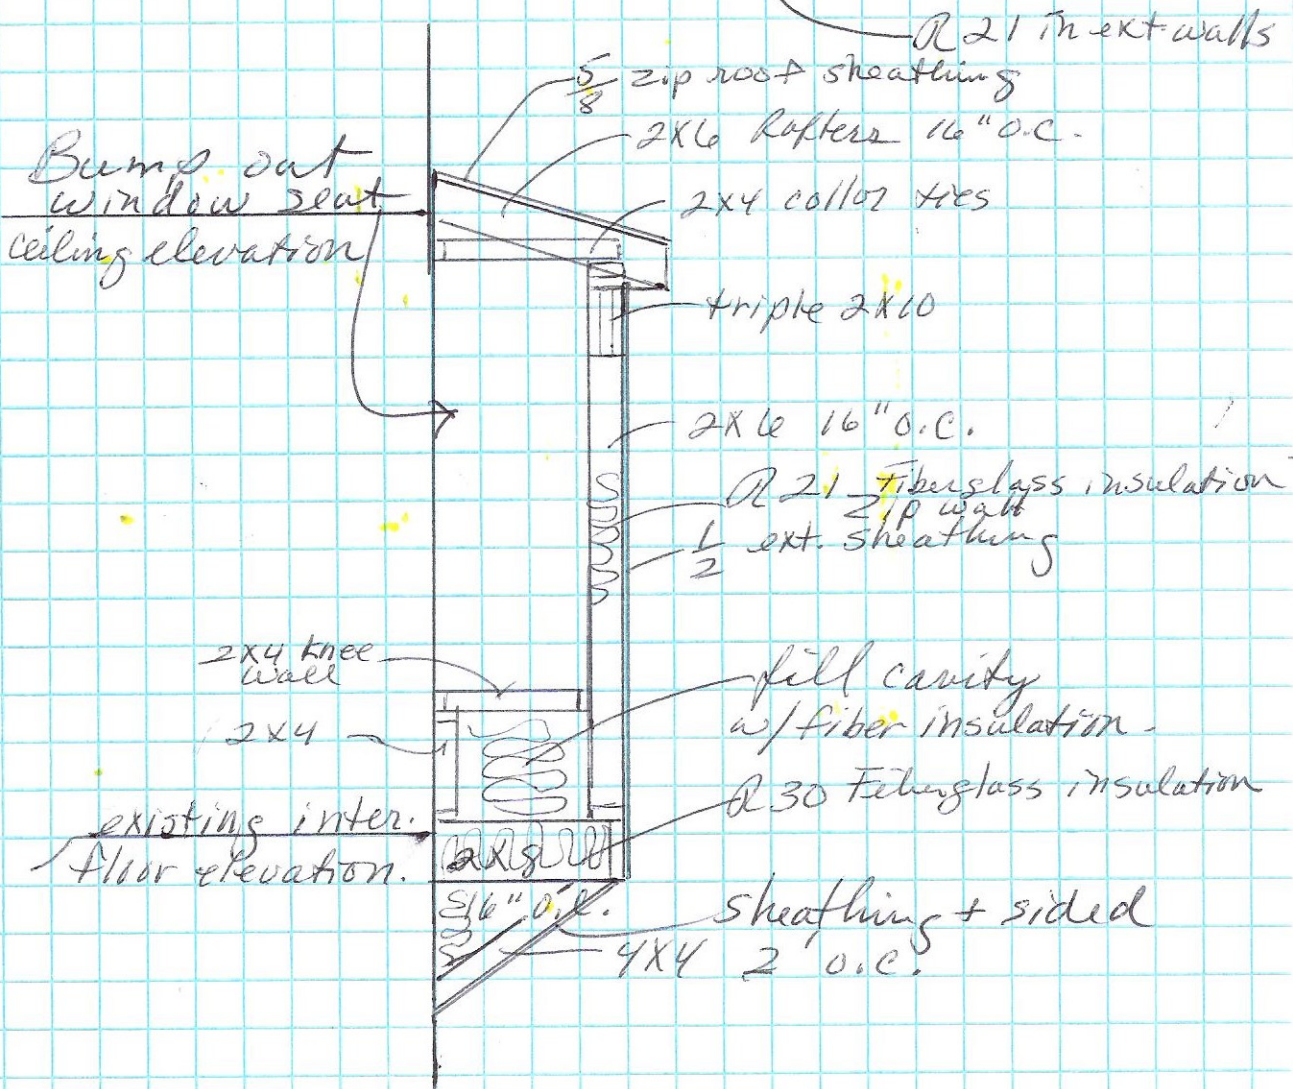 R 21 in ext walls
5/8 zip roof sheathing
2X6 Rafters 16" O.C.
Bump out
window seat
ceiling elevation
2x4 collar ties
triple 2X10
2X6 16" O.C.
R 21 Fiberglass insulation
Zip wall
1/2 ext. sheathing
2x4 knee
wall
2x4
fill cavity
w/ fiber insulation
R 30 Fiberglass insulation
existing inter.
floor elevation.
2x8
16" O.C.
sheathing + sided
4X4 2' O.C.